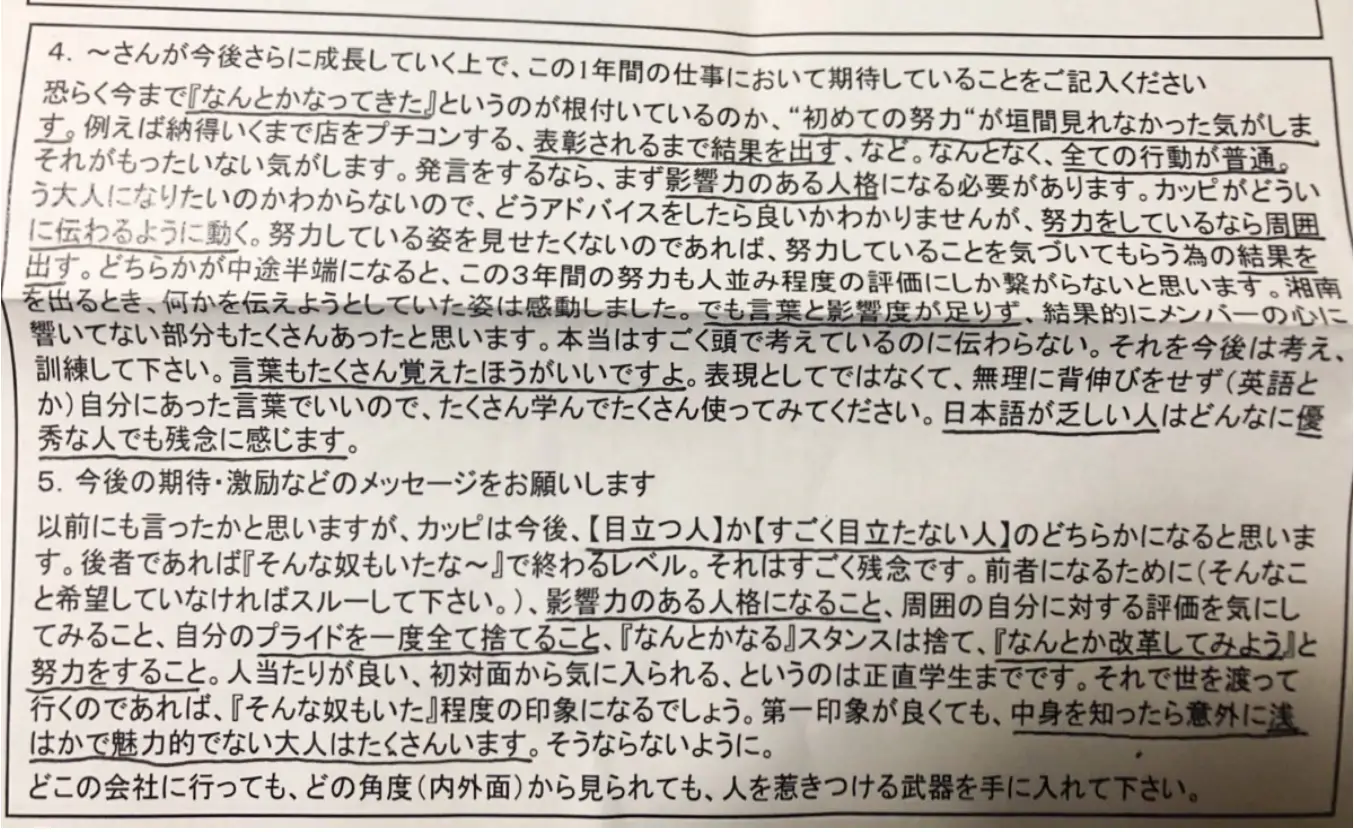 4. ～さんが今後さらに成長していく上で、この1年間の仕事において期待していることをご記入ください
恐らく今まで『なんとかなってきた』というのが根付いているのか、“初めての努力“が垣間見れなかった気がしま
す。例えば納得いくまで店をプチコンする、表彰されるまで結果を出す、など。なんとなく、全ての行動が普通。
それがもったいない気がします。発言をするなら、まず影響力のある人格になる必要があります。カッピがどうい
う大人になりたいのかわからないので、どうアドバイスをしたら良いかわかりませんが、努力をしているなら周囲
に伝わるように動く。努力している姿を見せたくないのであれば、努力していることを気づいてもらう為の結果を
出す。どちらかが中途半端になると、この3年間の努力も人並み程度の評価にしか繋がらないと思います。湘南
を出るとき、何かを伝えようとしていた姿は感動しました。でも言葉と影響度が足りず、結果的にメンバーの心に
響いてない部分もたくさんあったと思います。本当はすごく頭で考えているのに伝わらない。それを今後は考え、
訓練して下さい。言葉もたくさん覚えたほうがいいですよ。表現としてではなくて、無理に背伸びをせず(英語と
か)自分にあった言葉でいいので、たくさん学んでたくさん使ってみてください。日本語が乏しい人はどんなに優
秀な人でも残念に感じます。
5. 今後の期待・激励などのメッセージをお願いします
以前にも言ったかと思いますが、カッピは今後、【目立つ人】か【すごく目立たない人】のどちらかになると思いま
す。後者であれば『そんな奴もいたな～』で終わるレベル。それはすごく残念です。前者になるために(そんなこ
と希望していなければスルーして下さい。)、影響力のある人格になること、周囲の自分に対する評価を気にし
てみること、自分のプライドを一度全て捨てること、『なんとかなる』スタンスは捨て、『なんとか改革してみよう』と
努力をすること。人当たりが良い、初対面から気に入られる、というのは正直学生までです。それで世を渡って
行くのであれば、『そんな奴もいた』程度の印象になるでしょう。第一印象が良くても、中身を知ったら意外に浅
はかで魅力的でない大人はたくさんいます。そうならないように。
どこの会社に行っても、どの角度(内外面)から見られても、人を惹きつける武器を手に入れて下さい。